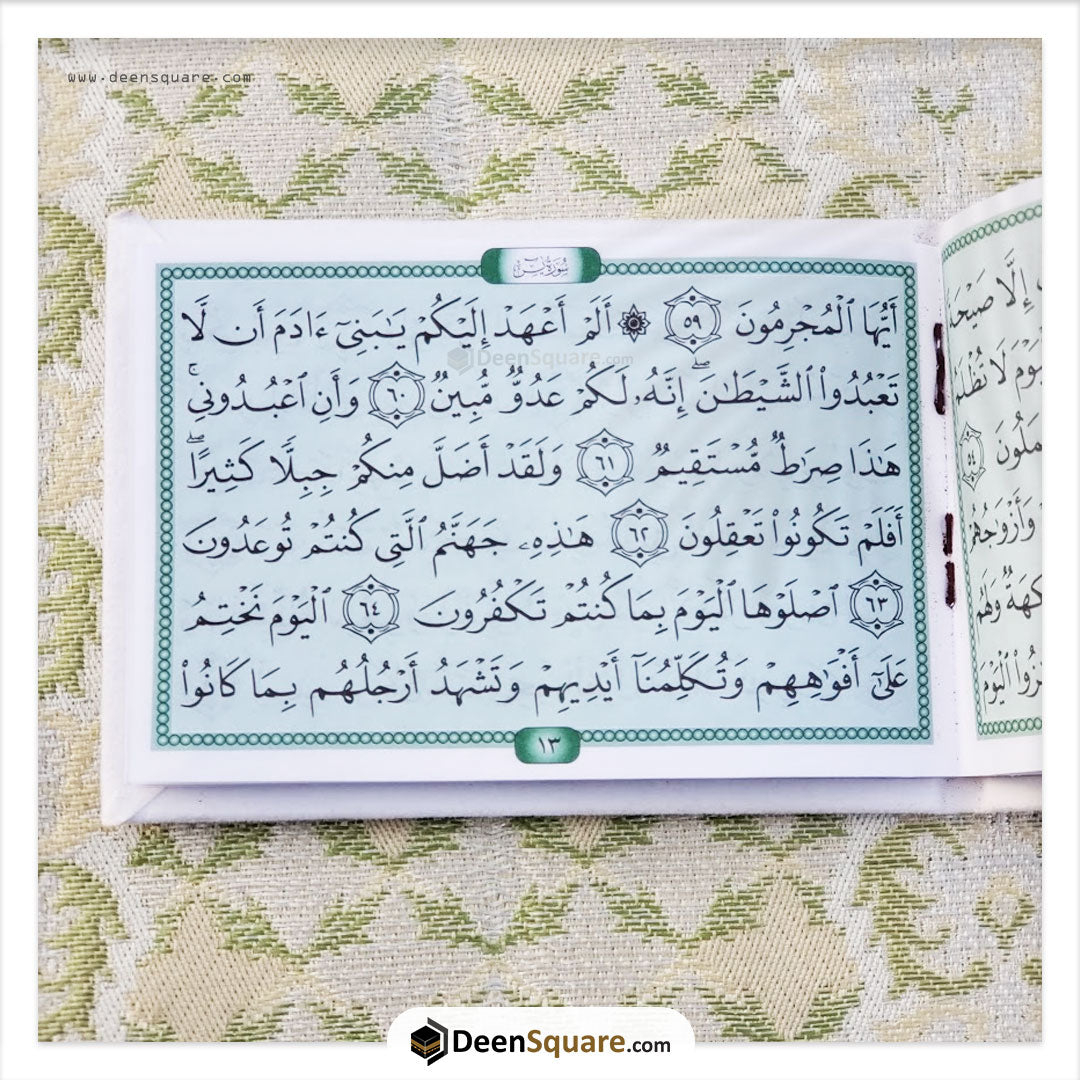 www.deensquare.com
سُورَةُ يسٓ
أَيُّهَا ٱلْمُجْرِمُونَ ٥٩ ۞ أَلَمْ أَعْهَدْ إِلَيْكُمْ يَٰبَنِىٓ ءَادَمَ أَن لَّا
تَعْبُدُوا۟ ٱلشَّيْطَٰنَ ۖ إِنَّهُۥ لَكُمْ عَدُوٌّ مُّبِينٌ ٦٠ وَأَنِ ٱعْبُدُونِى ۚ
هَٰذَا صِرَٰطٌ مُّسْتَقِيمٌ ٦١ وَلَقَدْ أَضَلَّ مِنكُمْ جِبِلًّا كَثِيرًا ۖ
أَفَلَمْ تَكُونُوا۟ تَعْقِلُونَ ٦٢ هَٰذِهِۦ جَهَنَّمُ ٱلَّتِى كُنتُمْ تُوعَدُونَ
٦٣ ٱصْلَوْهَا ٱلْيَوْمَ بِمَا كُنتُمْ تَكْفُرُونَ ٦٤ ٱلْيَوْمَ نَخْتِمُ
عَلَىٰٓ أَفْوَٰهِهِمْ وَتُكَلِّمُنَآ أَيْدِيهِمْ وَتَشْهَدُ أَرْجُلُهُم بِمَا كَانُوا۟
١٣
DeenSquare.com
إِلَّا صَيْحَةً
لَا تُظْلَمُ
٥٤
وَأَزْوَٰجُهُمْ
وَلَهُم
ٱلْيَوْمَ
DeenSquare.com